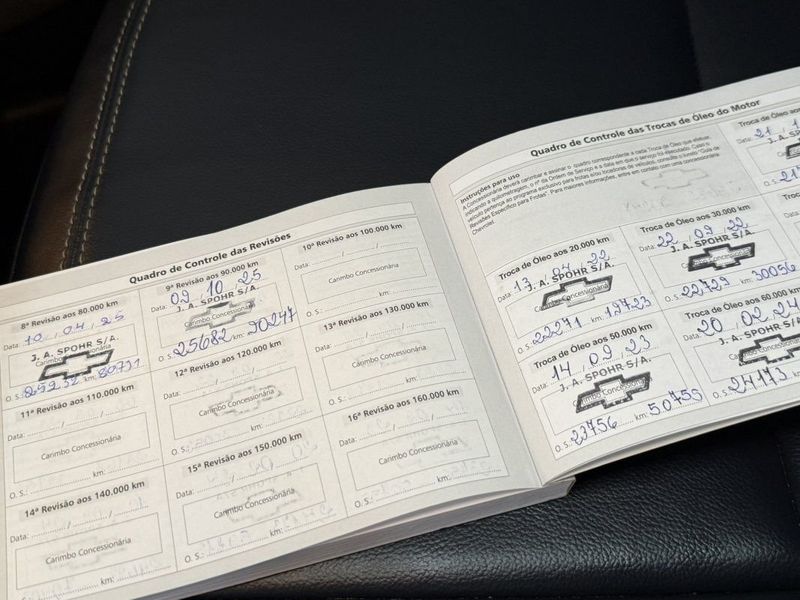 Quadro de Controle das Revisões
8ª Revisão aos 80.000 km
Data: 10 / 04 / 25
J. A. SPOHR S/A.
Carimbo Concessionária
O. S.: km: 80731
9ª Revisão aos 90.000 km
Data: 09 / 10 / 25
J. A. SPOHR S/A.
Carimbo Concessionária
O. S.: 25682 km: 90247
10ª Revisão aos 100.000 km
Data: / /
Carimbo Concessionária
O. S.: km:
11ª Revisão aos 110.000 km
Data: / /
Carimbo Concessionária
O. S.: km:
12ª Revisão aos 120.000 km
Data: / /
Carimbo Concessionária
O. S.: km:
13ª Revisão aos 130.000 km
Data: / /
Carimbo Concessionária
O. S.: km:
14ª Revisão aos 140.000 km
Data: / /
Carimbo Concessionária
O. S.: km:
15ª Revisão aos 150.000 km
Data: / /
Carimbo Concessionária
O. S.: km:
16ª Revisão aos 160.000 km
Data: / /
Carimbo Concessionária
O. S.: km:
Quadro de Controle das Trocas de Óleo do Motor
Instruções para uso
A Concessionária deverá carimbar e assinar o quadro correspondente a cada Troca de Óleo que efetuar,
indicando a quilometragem, o nº da Ordem de Serviço e a data em que o serviço foi executado. Caso o
veículo pertença ao programa exclusivo para frotas e/ou locadoras de veículos, consulte o livreto "Guia de
Revisões Específico para Frotas". Para maiores informações, entre em contato com uma concessionária
Chevrolet.
Troca de Óleo ao
Data: 21
J. A.
O. S.:
Troca de Óleo aos 20.000 km
Data: 13 / 04 / 22
J. A. SPOHR S/A.
Carimbo Concessionária
O. S.: 22271 km: 19723
Troca de Óleo aos 30.000 km
Data: 22 / 09 / 22
J. A. SPOHR S/A.
O. S.: 22729 km: 30056
Troca
Data:
O. S.:
Troca de Óleo aos 50.000 km
Data: 14 / 09 / 23
J. A. SPOHR S/A.
Carimbo Concessionária
O. S.: 23756 km: 50755
Troca de Óleo aos 60.000 km
Data: 20 / 02 / 24
J. A. SPOHR S/A.
Carimbo Concessionária
O. S.: 24173 km: